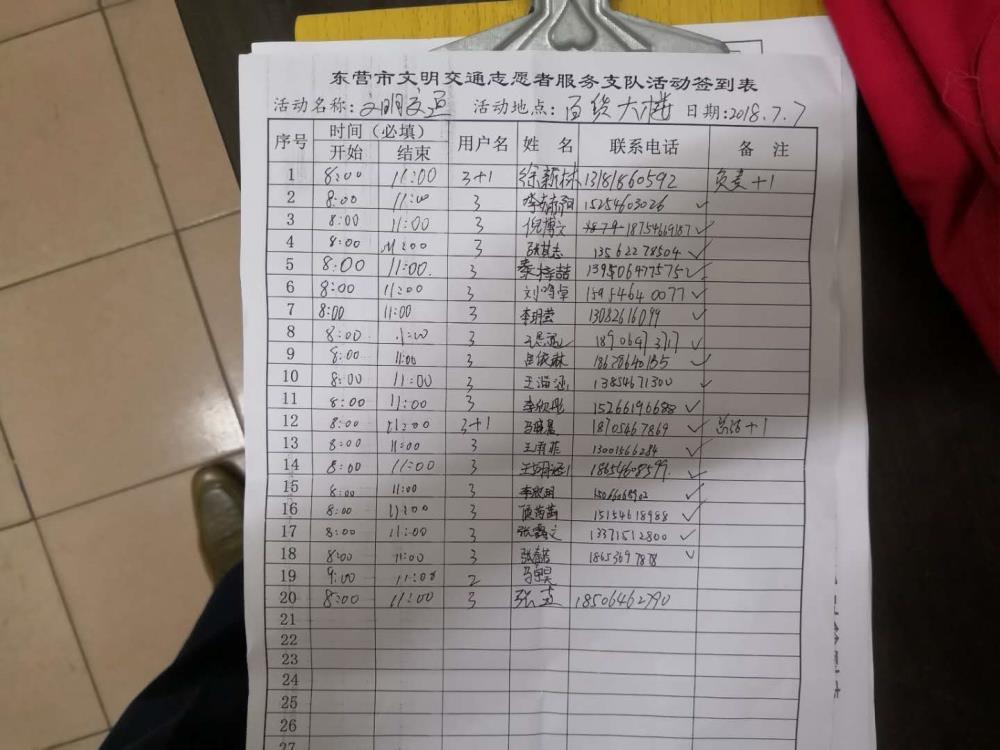 东营市文明交通志愿者服务支队活动签到表
活动名称:文明交通 活动地点:百货大楼 日期:2018.7.7
序号 时间（必填） 用户名 姓 名 联系电话 备 注
开始 结束
1 8:00 11:00 3+1 徐新林 13181860592 负责+1
2 8:00 11:00 3 15254603026 ✓
3 8:00 11:00 3 倪博文 18754669187 ✓
4 8:00 11:00 3 张其志 13562278504 ✓
5 8:00 11:00. 3 秦梓喆 13950647575 ✓
6 8:00 11:00 3 刘鸣卓 15954640077 ✓
7 8:00 11:00 3 李玥莹 13082616099 ✓
8 8:00 11:00 3 18906473717 ✓
9 8:00 11:00 3 18678640185 ✓
10 8:00 11:00 3 王淄涵 13854671300 ✓
11 8:00 11:00 3 李欣彤 15266196688 ✓
12 8:00 11:00 3+1 马晓晨 18705467869 ✓ 总结+1
13 8:00 11:00 3 王雨菲 13001566284 ✓
14 8:00 11:00 3 18654608599 ✓
15 8:00 11:00 3 ✓
16 8:00 11:00 3 15154618988 ✓
17 8:00 11:00 3 张露文 13371512800 ✓
18 8:00 11:00 3 18653697878 ✓
19 9:00 11:00 2 马昊
20 8:00 11:00 3 张 18506462790
21
22
23
24
25
26
27